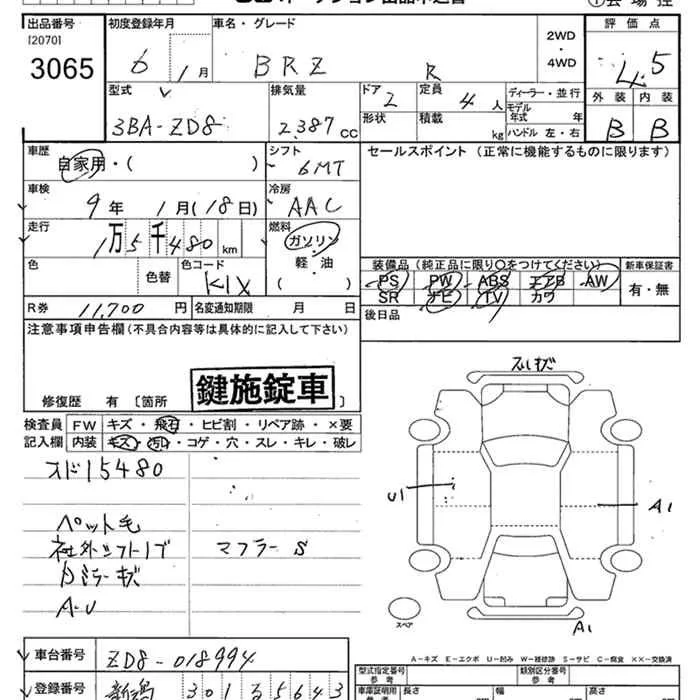 出品番号
[2070]
3065
初度登録年月
6 / 1月
車名・グレード
BRZ R
2WD
・
4WD
評価点
4.5
外装 内装
B B
型式
3BA-ZD8
排気量
2,387 CC
ドア 2
形状
定員 4 人
積載 kg
ディーラー・並行
モデル年式 年
ハンドル 左・右
車歴
自家用・( )
シフト
6MT
セールスポイント(正常に機能するものに限ります)
車検
9年 1月(18日)
冷房
AAC
走行
1万5千480 km
燃料
ガソリン
軽・油
( )
色
色替
色コード
K1X
装備品(純正品に限り○をつけてください)
PS PW ABS エアB AW
SR ナビ TV カワ
新車保証書
有・無
R券 11,700円
名変通知期限 月 日
後日品
注意事項申告欄(不具合内容等は具体的に記入して下さい)
鍵施錠車
修復歴 有 [箇所 ]
検査員 FW キズ・飛石・ヒビ割・リペア跡・×要
記入欄 内装 キズ・汚れ・コゲ・穴・スレ・キレ・破レ
スド15480
ペット毛
社外シフトノブ マフラー S
内ミラーキズ
A-U
スレキズ
U1
A1
スペア
A1
A-キズ E-エクボ U-凹み W-補修跡 S-サビ C-腐食 ××-交換済
車台番号 ZD8-018994
型式指定番号
参考
類別区分番号
参考
登録番号 新潟 301 5643
車庫証明用
長さ 幅 高さ